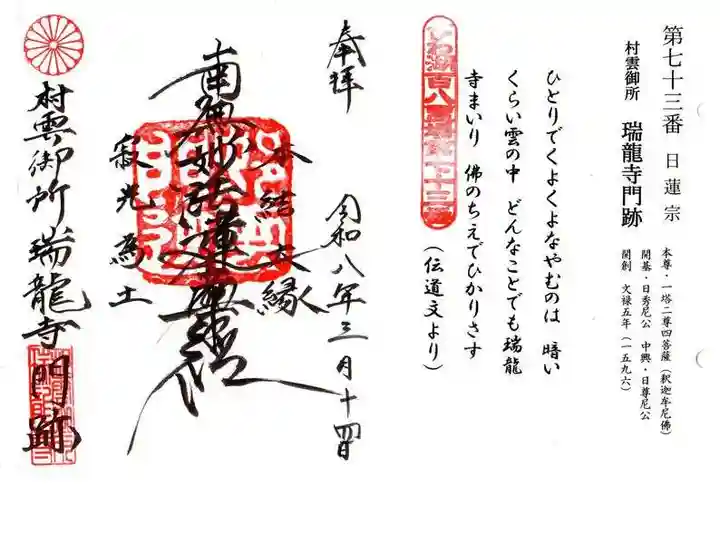 第七十三番 日蓮宗
村雲御所 瑞龍寺門跡
本尊・一塔二尊四菩薩(釈迦牟尼佛)
開基・日秀尼公 中興・日尊尼公
開創 文禄五年(一五九六)
ひとりでくよくよなやむのは 暗い
くらい雲の中 どんなことでも瑞龍
寺まいり 佛のちえでひかりさす
(伝道文より)
びわ湖百八霊場第七十三番
奉拝 令和八年三月十四日
本結大縁
南無妙法蓮華経
寂光為土
村雲御所瑞龍寺門跡